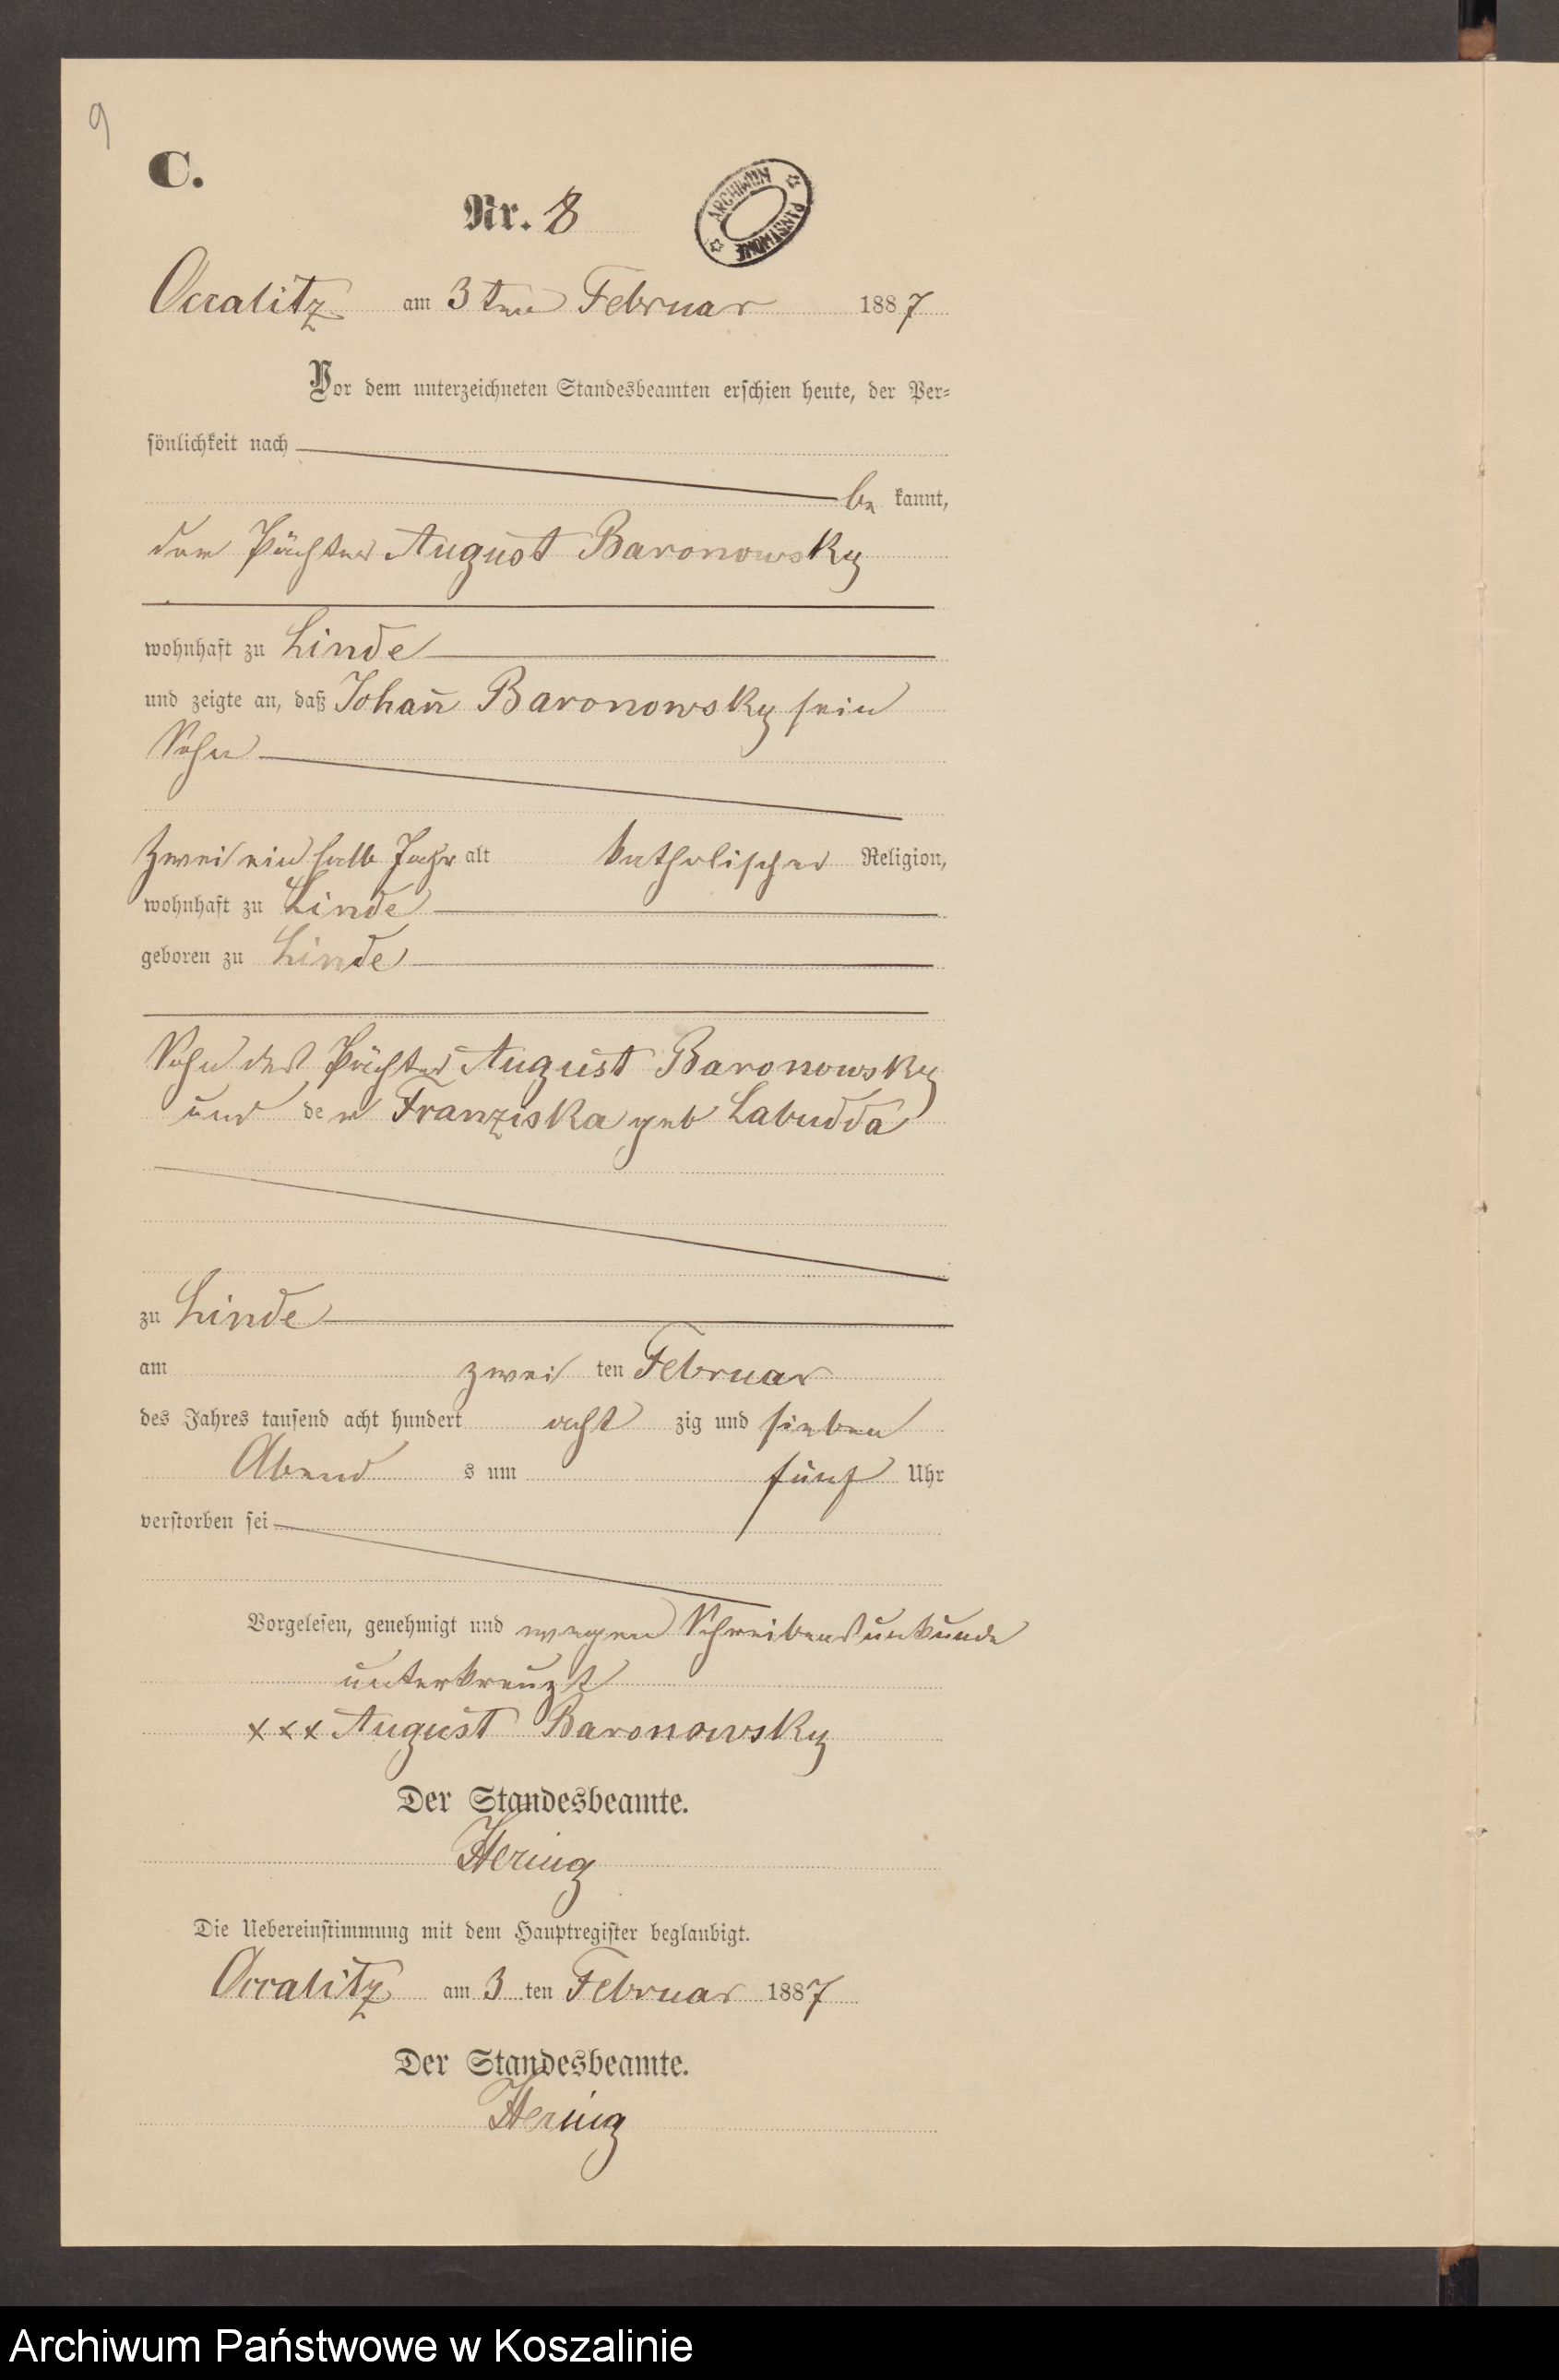 9
C.
Nr. 8
ARCHIWUM PAŃSTWOWE
Occalitz am 3ten Februar 1887
Vor dem unterzeichneten Standesbeamten erschien heute, der Per-
sönlichkeit nach
be kannt,
der Pächter August Baronowsky
wohnhaft zu Linde
und zeigte an, daß Johan̄ Baronowsky sein
Sohn
Zwei ein halb Jahr alt katholischer Religion,
wohnhaft zu Linde
geboren zu Linde
Sohn des Pächter August Baronowsky
und der Franziska geb Labudda
zu Linde
am zwei ten Februar
des Jahres tausend acht hundert acht zig und sieben
Abend s um fünf Uhr
verstorben sei
Vorgelesen, genehmigt und wegen Schreibensunkunde
unterkreuzt
xxx August Baronowsky
Der Standesbeamte.
Hering
Die Uebereinstimmung mit dem Hauptregister beglaubigt.
Occalitz am 3 ten Februar 1887
Der Standesbeamte.
Hering
Archiwum Państwowe w Koszalinie